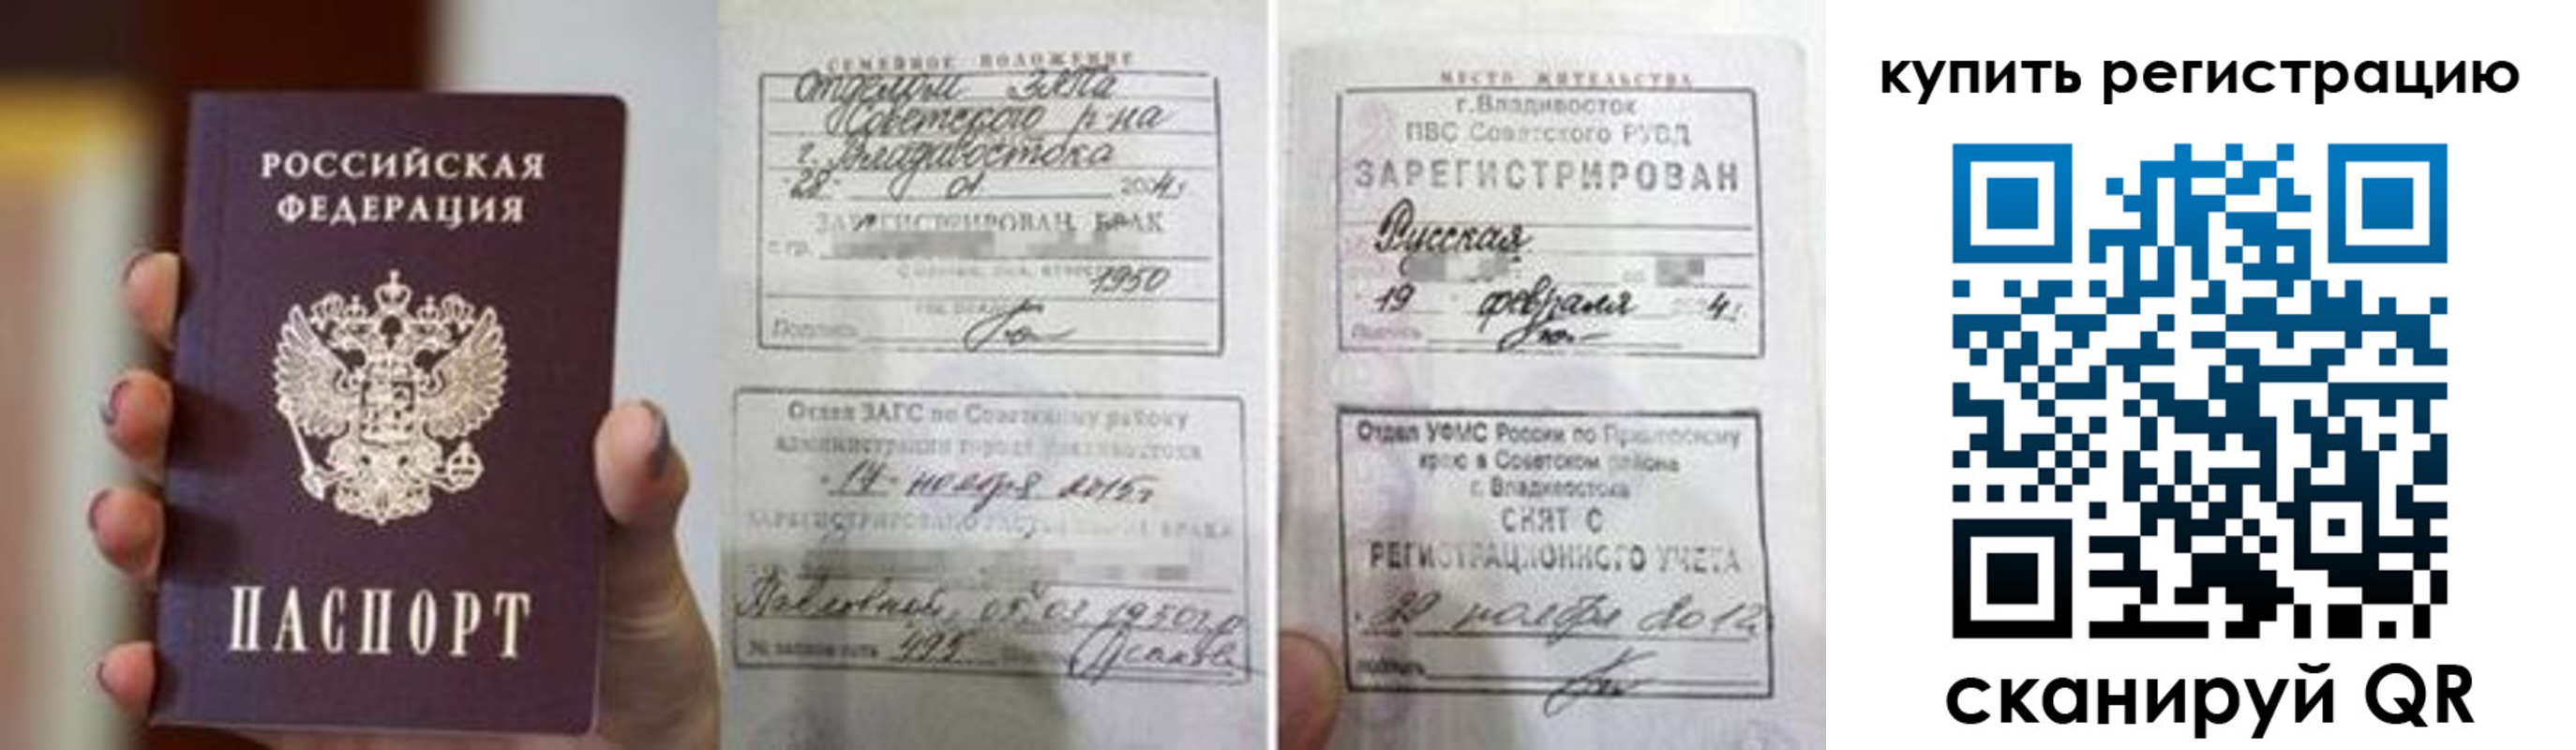 РОССИЙСКАЯ
ФЕДЕРАЦИЯ
ПАСПОРТ
СЕМЕЙНОЕ ПОЛОЖЕНИЕ
Отделом ЗАГСа
Советского р-на
г. Владивостока
"28" 01 2004 г.
ЗАРЕГИСТРИРОВАН БРАК
с гр.
1950
Подпись
Отдел ЗАГС по Советскому району
администрации города Владивостока
"17" ноября 2015 г.
Павловной, 05.03.1950 г.р.
495
МЕСТО ЖИТЕЛЬСТВА
г.Владивосток
ПВС Советского РУВД
ЗАРЕГИСТРИРОВАН
Русская
19 февраля 4г.
Подпись
Отдел УФМС России по Приморскому
краю в Советском районе
г. Владивостока
СНЯТ С
РЕГИСТРАЦИОННОГО УЧЕТА
ноября 2012
подпись
купить регистрацию
сканируй QR